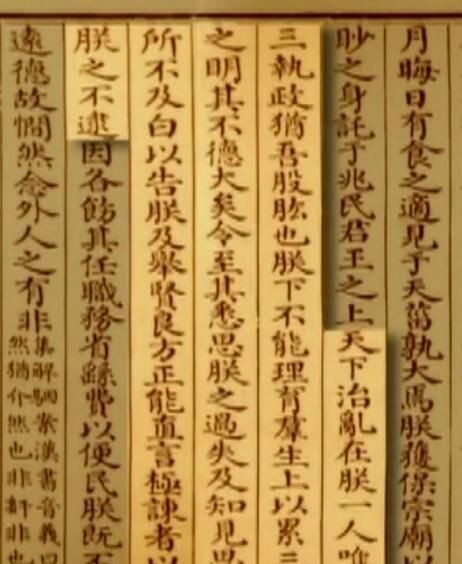 月晦日有食之適見于天菑孰大焉朕獲保宗廟以
眇之身託于兆民君王之上天下治亂在朕一人唯
三執政猶吾股肱也朕下不能理育羣生上以累三
之明其不德大矣令至其悉思朕之過失及知見思
所不及匄以告朕及舉賢良方正能直言極諫者以
朕之不逮因各飭其任職務省繇費以便民朕既不
遠德故憪然念外人之有非
集解駰案漢書音義曰
然猶介然也非姧非也